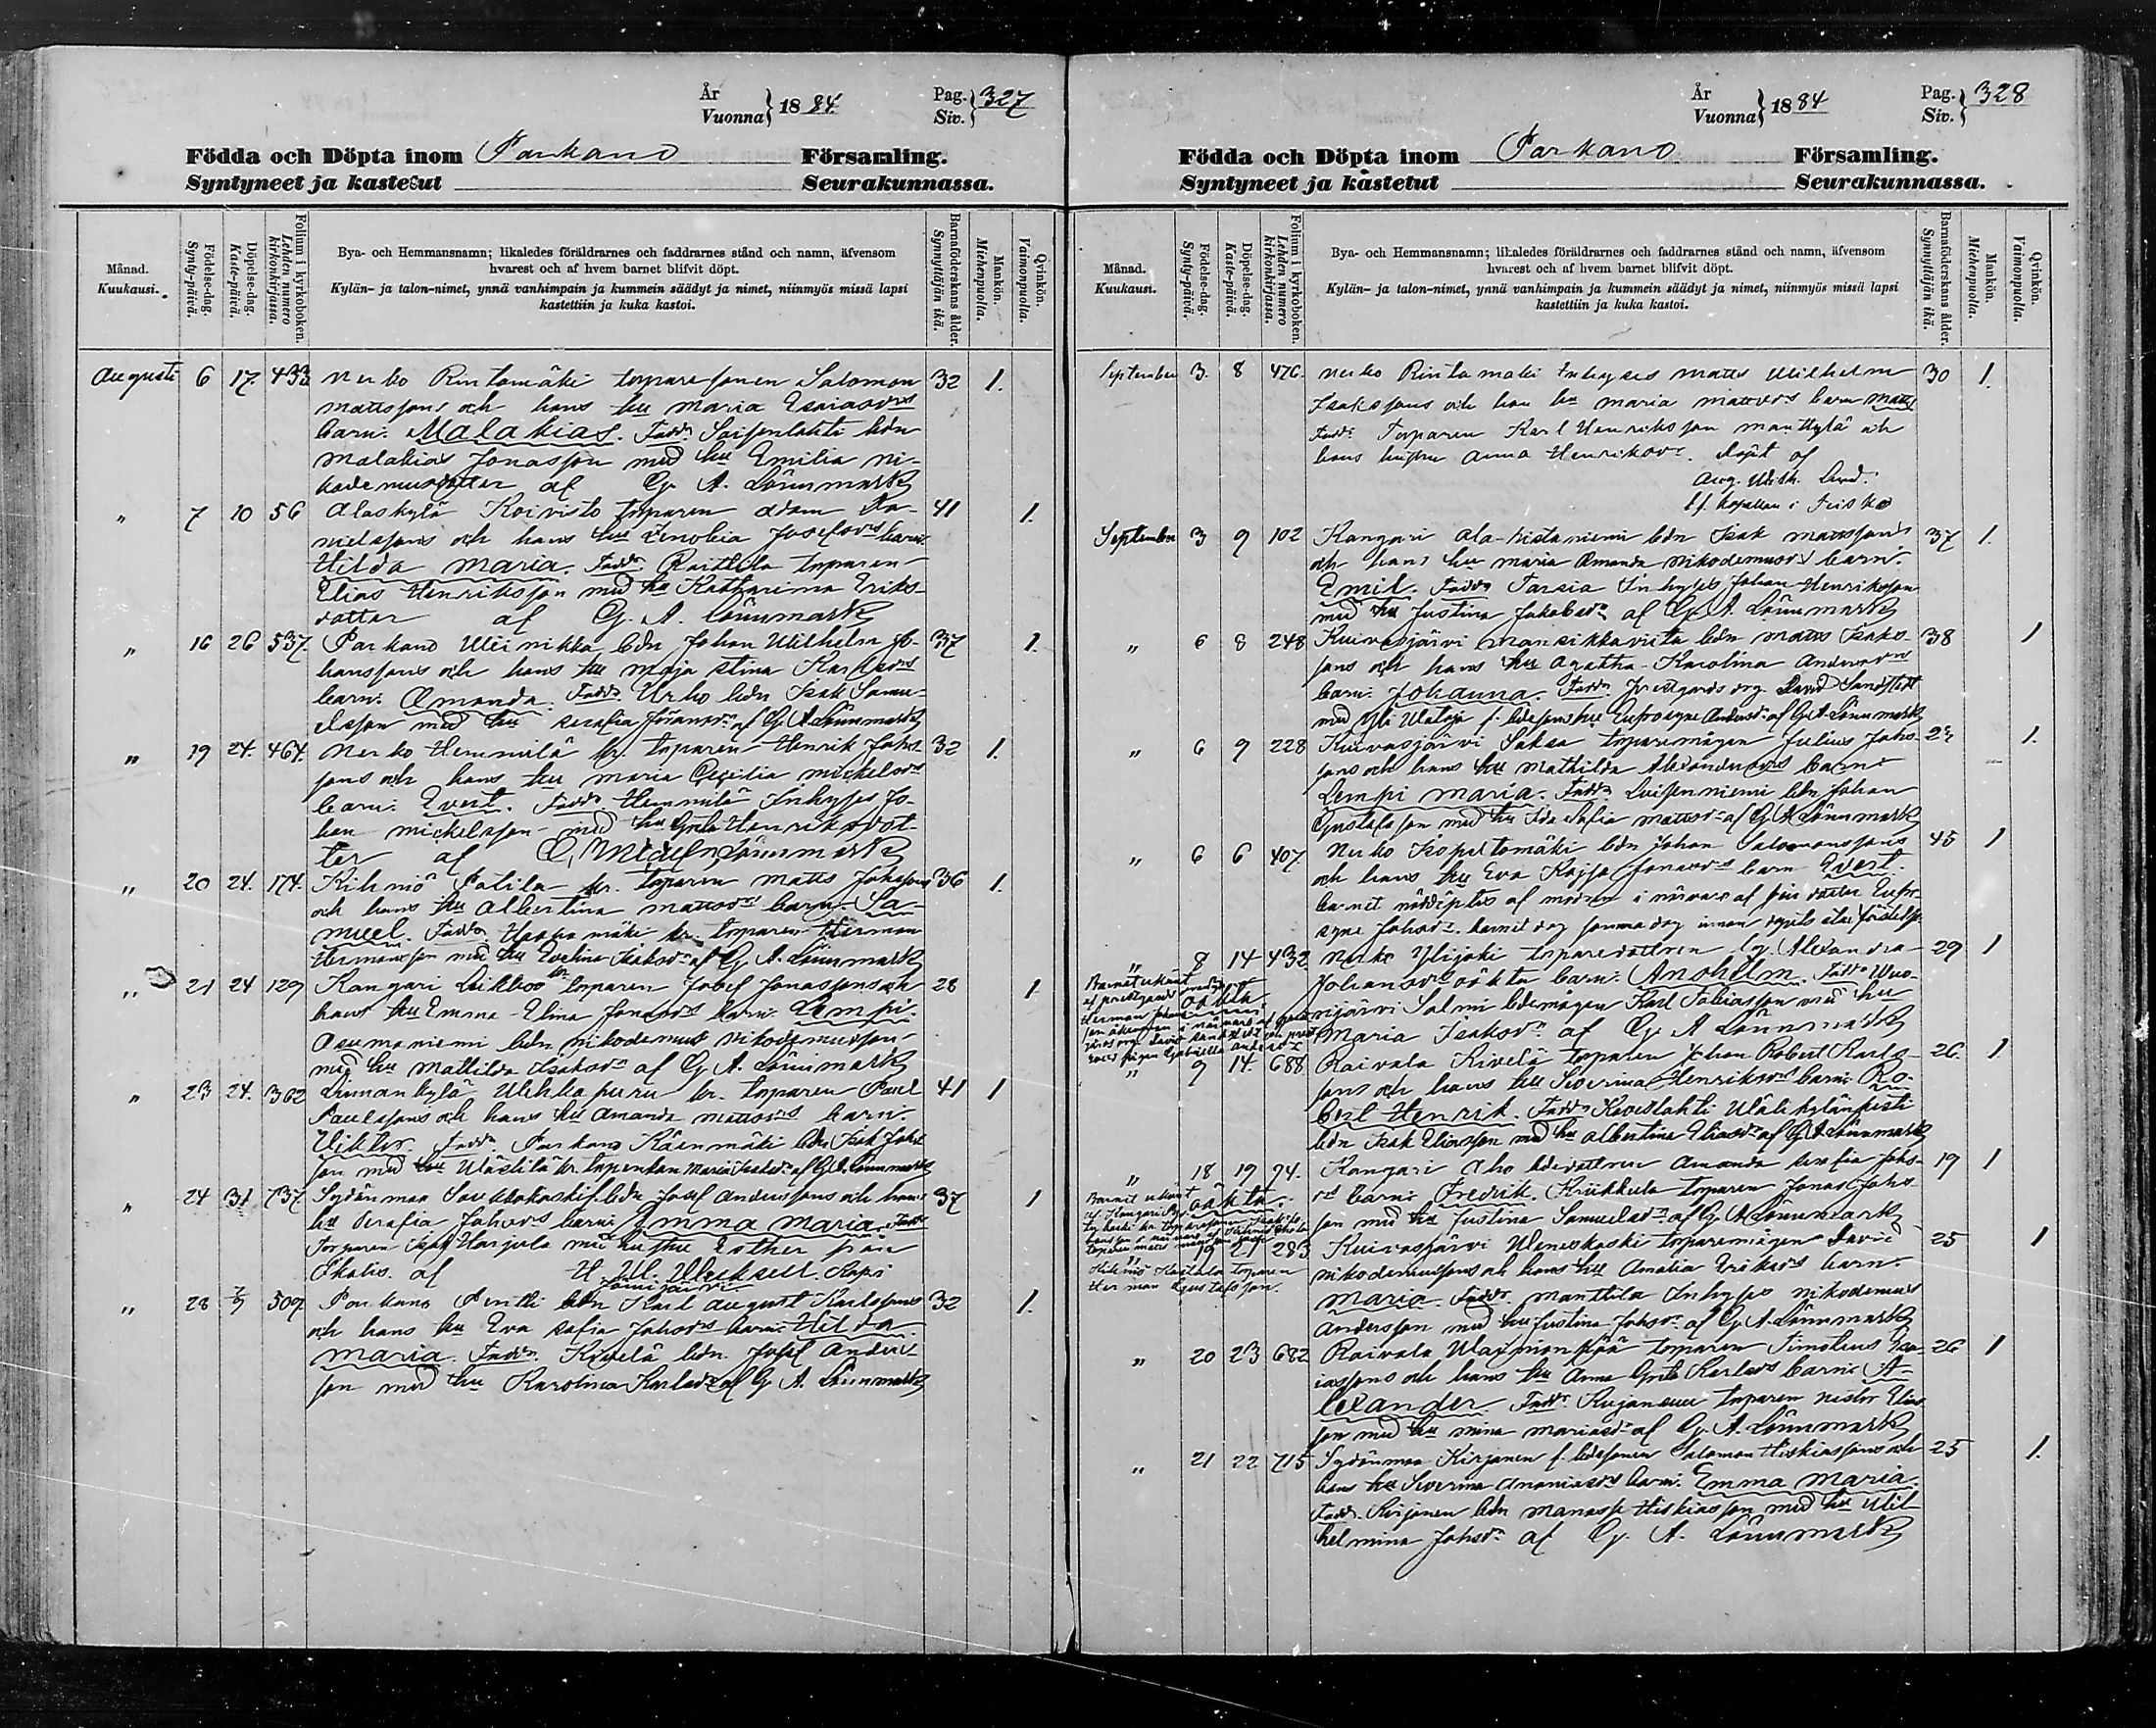 År
Vuonna } 1884. Pag. Siv. } 327
Födda och Döpta inom Parkano Församling.
Syntyneet ja kastetut Seurakunnassa.
Månad. Kuukausi.
Födelse-dag. Synty-päivä.
Döpelse-dag. Kaste-päivä.
Folium i kyrkoboken. Lehden numero kirkonkirjassa.
Bya- och Hemmansnamn; likaledes föräldrarnes och faddrarnes stånd och namn, äfvensom
hvarest och af hvem barnet blifvit döpt.
Kylän- ja talon-nimet, ynnä vanhimpain ja kummein säädyt ja nimet, niinmyös missä lapsi
kastettiin ja kuka kastoi.
Barnaföderskans ålder. Synnyttäjän ikä.
Mankön. Miehenpuolta.
Qvinkön. Vaimonpuolta.
Augusti 6 17. 433 Nerko Rintamäki torparesonen Salomon 32 1.
Mattssons och hans hu Maria Esaiasdrs
barn: Malakias. Faddr: Saisenlahti bdn
Malakias Jonasson med hu Emilia Ni-
kodemusdotter af G. A. Lönnmark
" 7 10 56 Alaskylä Koivisto torparen Adam Da- 41 1.
nielssons och hans hu Zenobia Josefsdrs barn:
Hilda Maria. Faddr: Raittila torparen
Elias Henriksson med hu Katharina Eriks-
dotter af G. A. Lönnmark
" 16 26 537. Parkano bdn Johan Wilhelm Jo- 37 1.
hanssons och hans hu Maja Stina Karlsdrs
barn: Amanda. Faddr. bdn Isak Samu-
elsson med hu Serafia af G. A. Lönnmark
" 19 24. 464. Nerko Hemmilä kr. torparen Henrik Johs- 32 1.
sons och hans hu Maria Cecilia Mickelsdrs
barn: Evert. Faddr. Hemmilä Inhyses Jo-
han Mickelsson med hu Greta Henriksdot-
ter af Lönnmark
" 20 24. 174. Kihniö Patila kr. torparen Matts Johssons 36 1.
och hans hu Albertina Mattsdrs barn: Sa-
muel. Faddr mäki kr. torparen Herman
Hermansson med hu Evelina Isaksdr af G. A. Lönnmark
" 21 24 129 Kangari kr. torparen Josef Jonassons och 28 1
hans hu Emma Elina Jonasdrs barn: Lempi.
Asumaniemi bdn Nikodemus Nikodemusson
med hu Mathilda Isaksdr af G. A. Lönnmark
" 23 24. 362 Linnankylä kr. torparen Paul 41 1
Paulssons och hans hu Amanda Mattsdrs barn:
Viktor. Faddr. Parkano Käenmäki bdn Isak Johs-
son med hu kr. Maria Isaksdr af G. A. Lönnmark
" 24 31 737 Sydänmaa bdn Josef Anderssons och hans 37 1
hu Serafia Johsdrs barn: Emma Maria. Faddr
Torparen Isak Harjula med hustru Esther från
Ikalis. af H. W. Kapl.
i Jämijärvi
" 28 7/9 509 Parkano Pentti bdn Karl August Karlssons 32 1.
och hans hu Eva Sofia Johsdrs barn: Hilda
Maria. Faddr. Kivelä bdn. Josef Anders-
son med hu Karolina Karlsdr af G. A. Lönnmark
År
Vuonna } 1884 Pag. Siv. } 328
Födda och Döpta inom Parkano Församling.
Syntyneet ja kastetut Seurakunnassa.
Månad. Kuukausi.
Födelse-dag. Synty-päivä.
Döpelse-dag. Kaste-päivä.
Folium i kyrkoboken. Lehden numero kirkonkirjassa.
Bya- och Hemmansnamn; likaledes föräldrarnes och faddrarnes stånd och namn, äfvensom
hvarest och af hvem barnet blifvit döpt.
Kylän- ja talon-nimet, ynnä vanhimpain ja kummein säädyt ja nimet, niinmyös missä lapsi
kastettiin ja kuka kastoi.
Barnaföderskans ålder. Synnyttäjän ikä.
Mankön. Miehenpuolta.
Qvinkön. Vaimonpuolta.
September 3. 8 476. Nerko Rintamäki Inhyses Matts Wilhelm 30 1.
Isakssons och hans hu Maria Mattsdrs barn Matts
Faddr: Torparen Karl Henriksson Manttylä och
hans hustru Anna Henriksdr. Döpt af
Aug. Wilh.
kapellan i
September 3 9 102 Kangari Ala-Kistaniemi bdn Isak Mattssons 37 1.
och hans hu Maria Amanda Nikodemusdrs barn:
Emil. Faddr Tarsia Inhyses Johan Henriksson
med hu Justina Jakobsdr af G. A. Lönnmark
" 6 8 248 Kuivasjärvi Mansikkaviita bdn Matts Isaks- 38 1
sons och hans hu Agatha Karolina Andersdrs
barn: Johanna. Faddr Prestgårds drg. David Sandstedt
med Yli Eufrosyne Andersdr af G. A. Lönnmark
" 6 9 228 Kuivasjärvi Saksa torparemågen Julius Johs- 1.
sons och hans hu Mathilda Alexandersdrs barn:
Lempi Maria. Faddr Luisenniemi bdn Johan
Gustafsson med hu Ida Sofia Mattsdr af G. A. Lönnmark
" 6 6 407 Nerko Isopeltomäki bdn Johan Salomonssons 45 1
och hans hu Eva Kajsa Jonasdrs barn Evert.
barnet nöddöptes af modren i närvaro af sin dotter Eufro-
syne Johsdr. barnet dog samma dag innan
" 8 14 432 Nerko Ylijoki torparedottren Alexandra 29 1
Johansdrs oäkta barn: Anshelm. Faddr Vuo-
rijärvi Salmi bdemågen Karl Tobiasson med hu
Maria Isaksdr af G. A. Lönnmark
Barnet erkänt
af prestgårds
Herman
oäkta
i närvaro af
David Sandstedt och
pigan Gabriella Andersdr
" 9 14. 688 Raivala Kivelä torparen Johan Robert Karls- 26. 1
sons och hans hu Severina Henriksdrs barn: Ro-
bert Henrik. Faddr Koveslahti
bdn Isak Eliasson med hu Albertina Eliasdr af G. A. Lönnmark
" 18 19 94. Kangari Aho bdedottren Amanda Serafia Johs- 19 1
drs barn: Fredrik. Kiukkula torparen Jonas Johs-
son med hu Justina Samuelsdr af G. A. Lönnmark
Barnet erkänt
oäkta.
" 19 21 283 Kuivasjärvi Weneskoski torparemågen David 25 1
Nikodemussons och hans hu Amalia Eriksdrs barn:
Maria. Faddr. Manttila Inhyses Nikodemus
Andersson med hu Justina Johsdr af G. A. Lönnmark
Kihniö Kastala torparen
Herman Gustafsson.
" 20 23 682 Raivala torparen Timotheus Esa- 26 1
iassons och hans hu Anna Greta Karlsdrs barn: A-
lexander. Faddr torparen Nestor Elias-
son med hu Mina af G. A. Lönnmark
" 21 22 715 Sydänmaa Kirjanen f. bdesonen Salomon Hiskiassons och 25 1.
hans hu Severina Ananiasdrs barn: Emma Maria.
Faddr. Kirjanen bdn Manasse Hiskiasson med hu Wil-
helmina Johsdr af G. A. Lönnmark